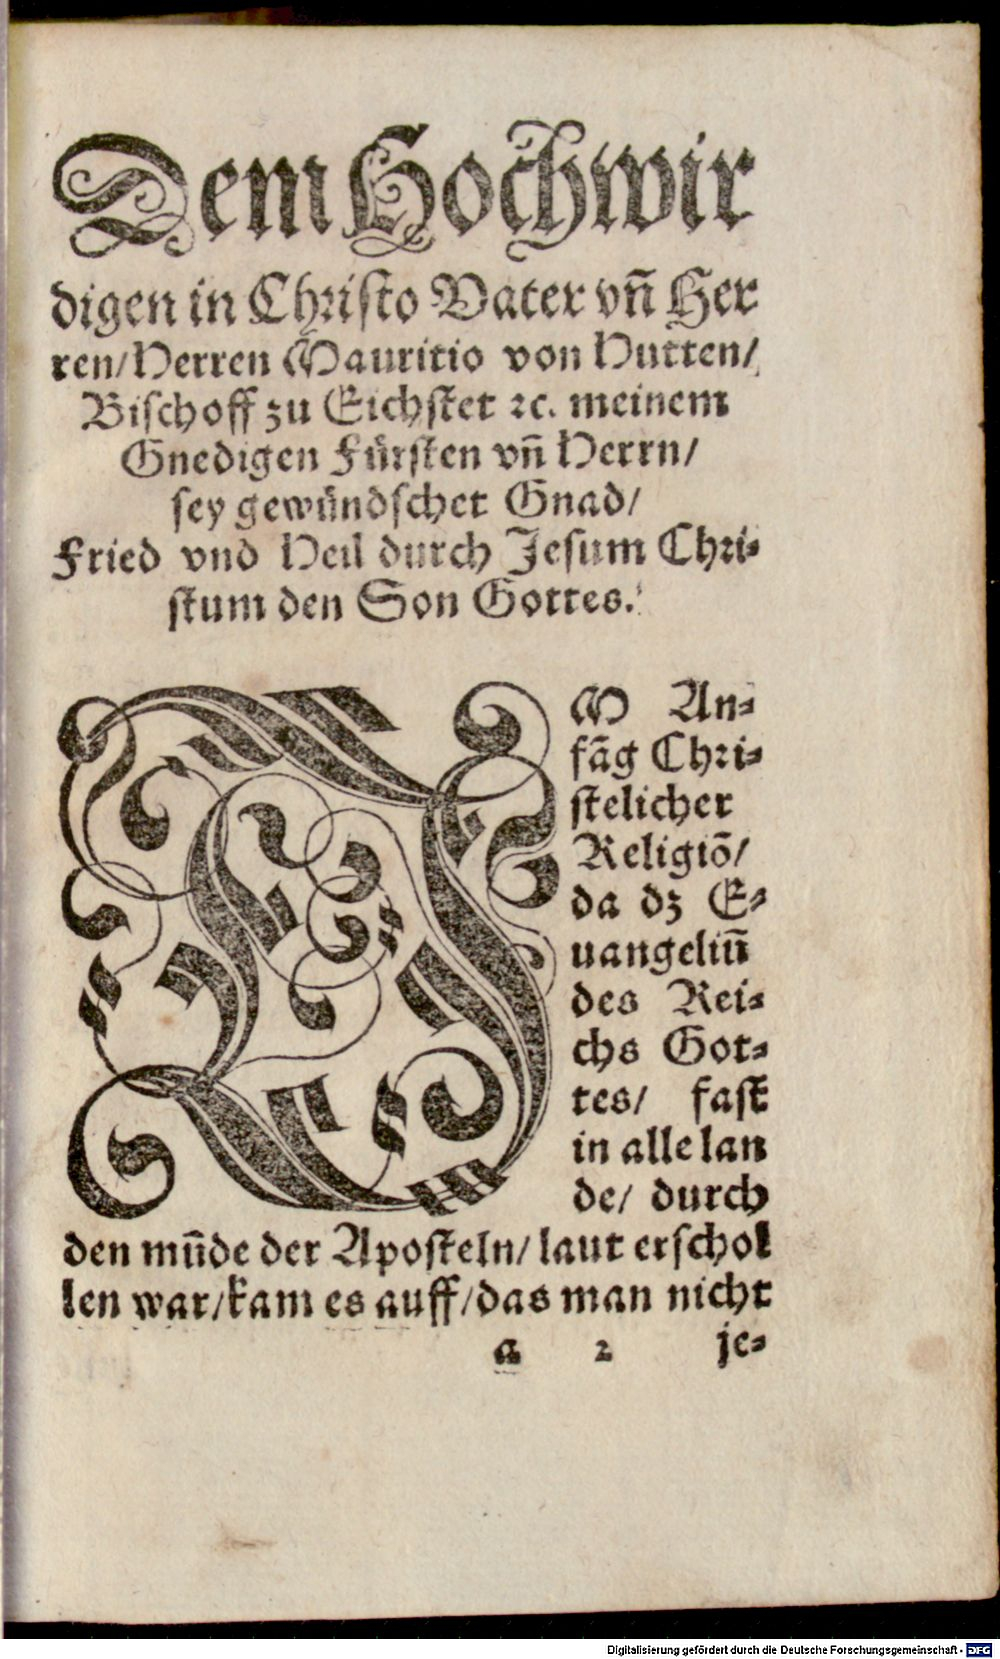 Dem Hochwir
digen in Christo Vater vñ Her
ren/Herren Mauritio von Hutten/
Bischoff zu Eichstet ꝛc. meinem
Gnedigen Fürsten vñ Herrn/
sey gewündschet Gnad/
Fried vnd Heil durch Jesum Chri-
stum den Son Gottes.
IM An-
fãg Chri-
stelicher
Religiõ/
da dz E-
uangeliũ
des Rei-
chs Got-
tes/ fast
in alle lan
de/ durch
den mũde der Aposteln/ laut erschol
len war/kam es auff/das man nicht
a 2 je-
Digitalisierung gefördert durch die Deutsche Forschungsgemeinschaft - DFG